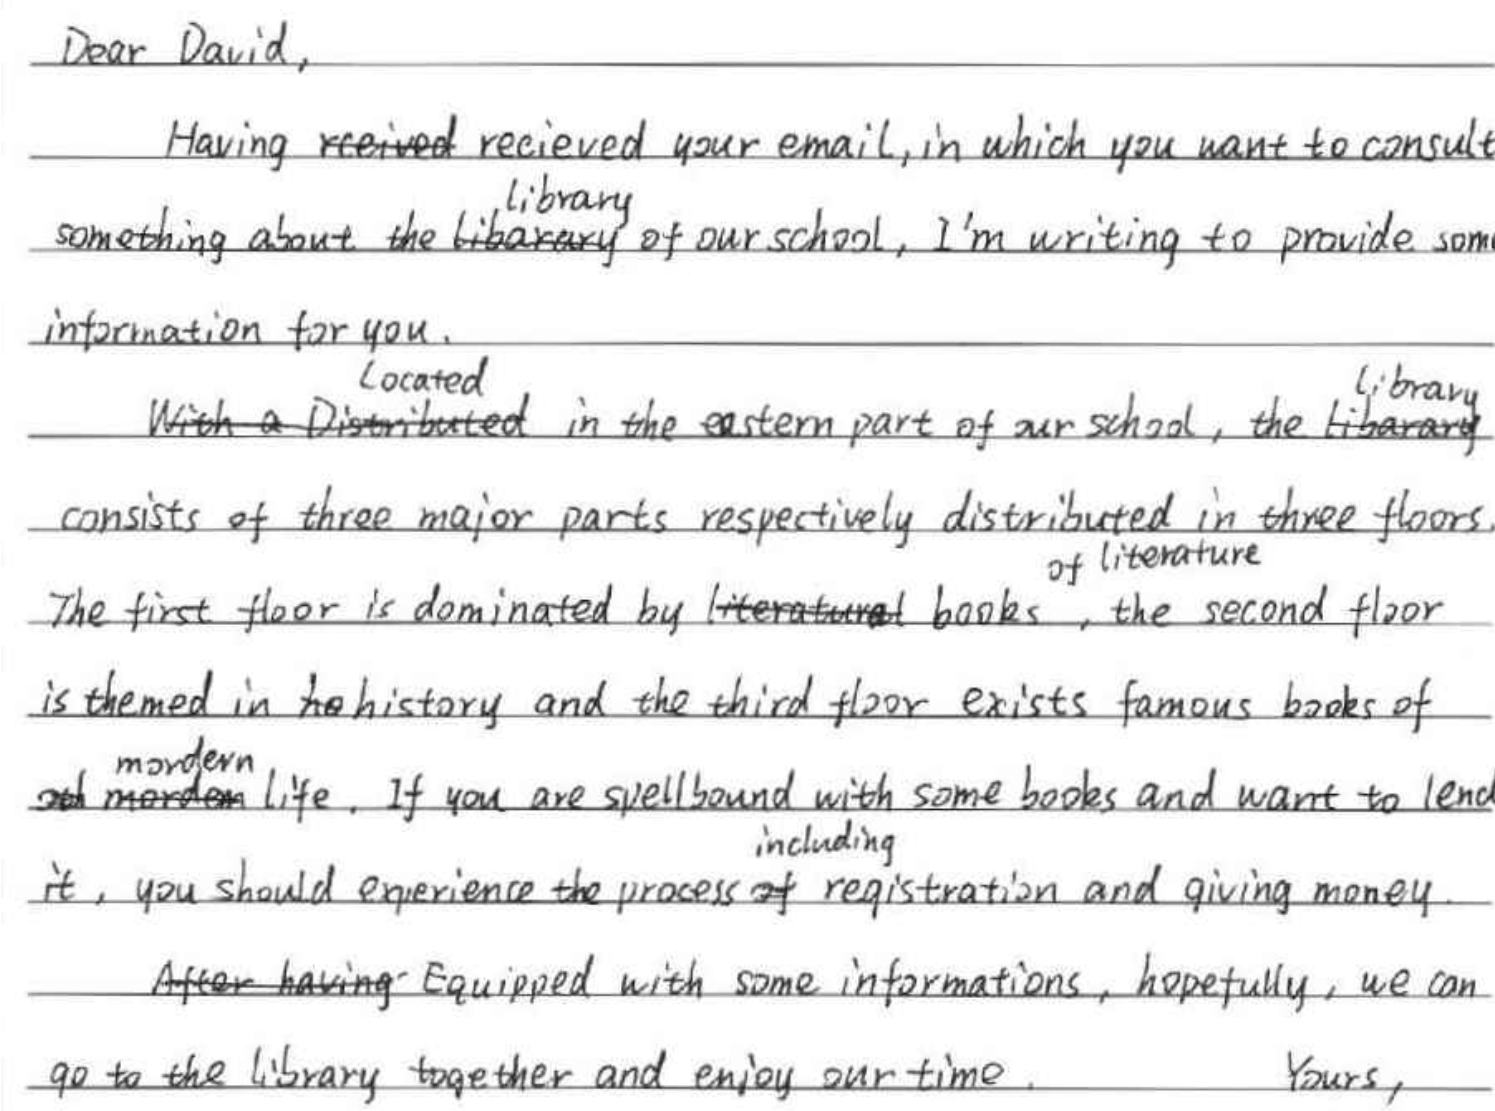 Dear David,
Having rceived recieved your email, in which you want to consult
library
something about the libarary of our school, I'm writing to provide some
information for you.
Located library
With a Distributed in the eastern part of our school, the libarary
consists of three major parts respectively distributed in three floors.
of literature
The first floor is dominated by literatural books, the second floor
is themed in ho history and the third floor exists famous books of
mordern
morden life. If you are spellbound with some books and want to lend
including
it, you should experience the process of registration and giving money.
After having Equipped with some informations, hopefully, we can
go to the library together and enjoy our time. Yours,